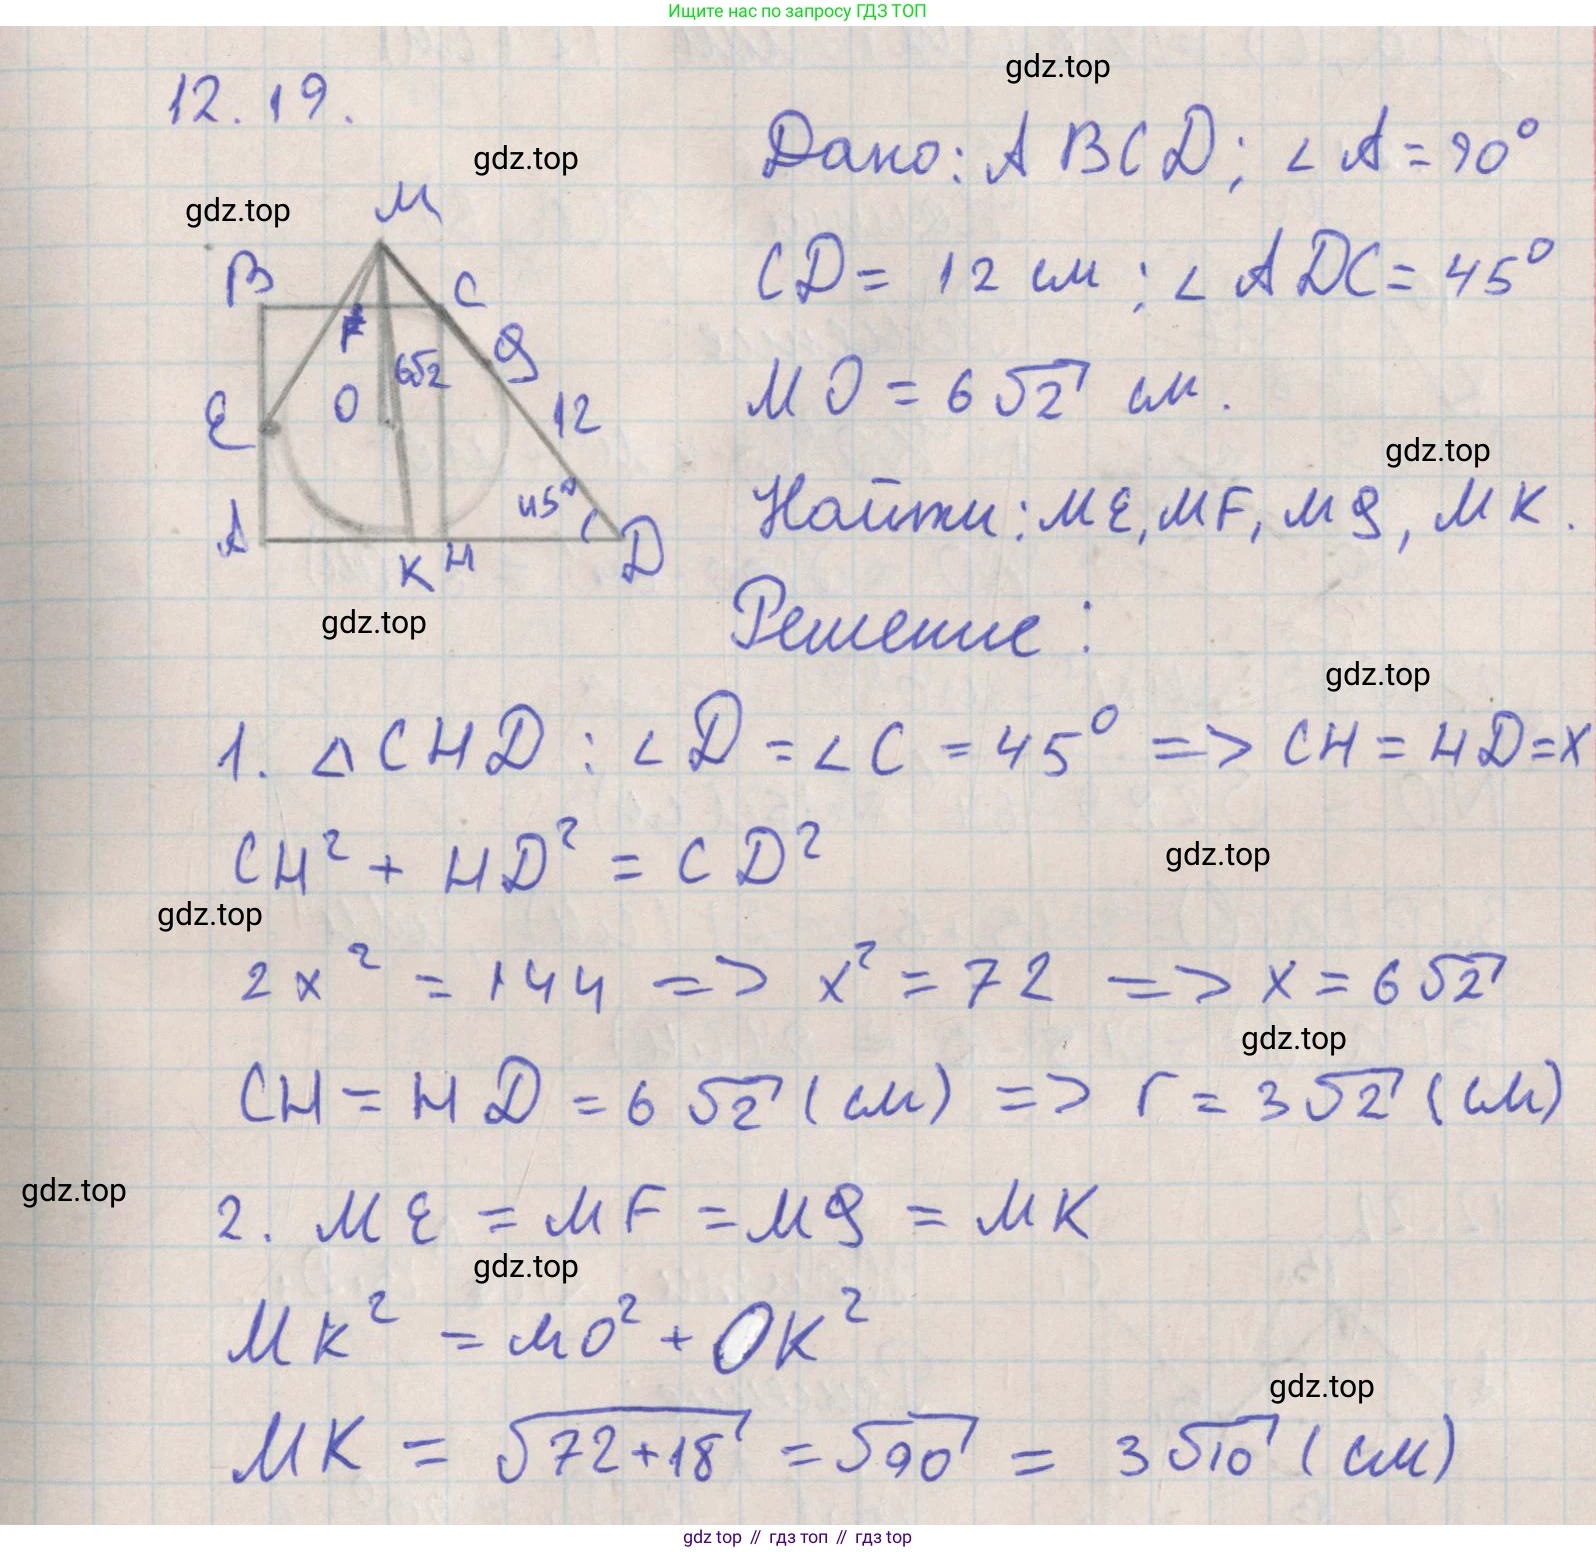 Ищите нас по запросу ГДЗ ТОП
12.19.
gdz.top
gdz.top
gdz.top
M
B
C
F
6√2
Q
O
12
E
45°
A
K
H
D
gdz.top
Дано: ABCD; ∠A = 90°
CD = 12 см; ∠ADC = 45°
MO = 6√2 см.
gdz.top
Найти: ME, MF, MQ, MK.
Решение:
gdz.top
1. △CHD: ∠D = ∠C = 45° => CH = HD = x
CH² + HD² = CD²
gdz.top
gdz.top
2x² = 144 => x² = 72 => x = 6√2
gdz.top
CH = HD = 6√2 (см) => r = 3√2 (см)
gdz.top
2. ME = MF = MQ = MK
gdz.top
MK² = MO² + OK²
gdz.top
MK = √72+18 = √90 = 3√10 (см)
gdz top // гдз топ // gdz top